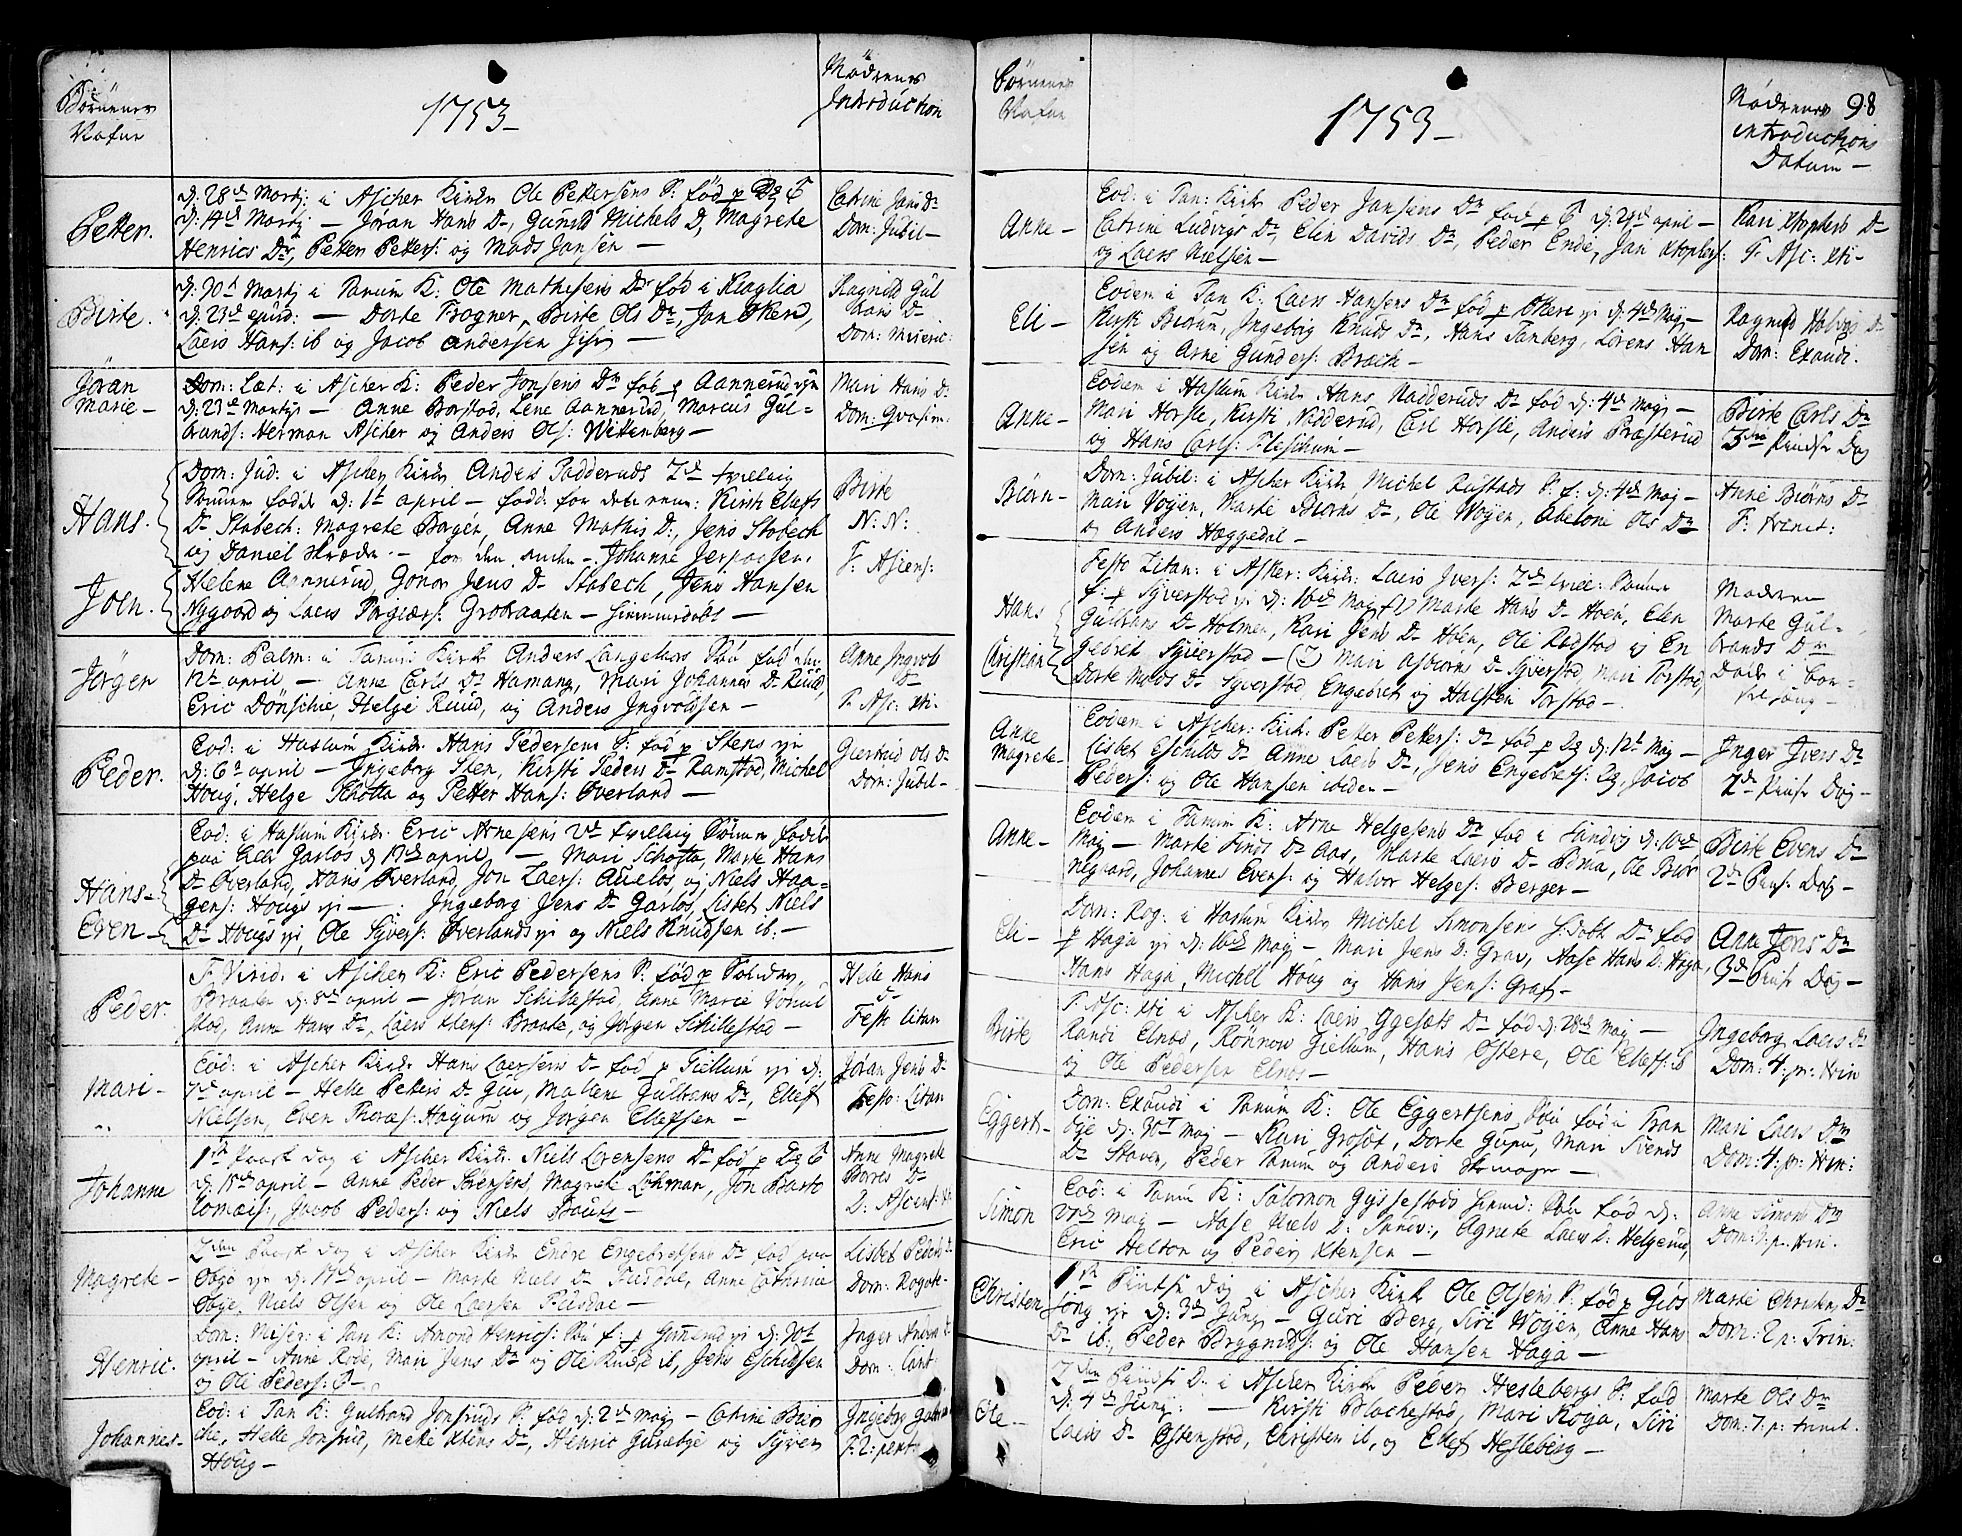 Börnenes
Nafne
1753-
Mödrenes
Introduction
Petter.
d: 28de Martj: i Ascher Kirke Ole Pettersens S: föd p
d: 14de Martj - Jöran Hans D-, Gunild Michels D, Magrete
Henrics Dr, Petter Petters: og Mads Jansen -
Catrine Jans D-
Dom: Jubil-
Birte.
d: 30t Martj i Tanum K: Ole Mathisens Dr föd i
d: 23de ejusd: - Dorte Frogner, Birte Ols Dr, Jon
Laers Hans: ib og Jacob Andersen
Ragnild Gul
D-
Dom: Miseric:
Jöran
Marie-
Dom: Læt: i Ascher K: Peder Jonsens Dr föd p Aannerud
d: 23de Martij - Anne Borstad, Lene Aannerud, Marcus Gul-
brands: Herman Ascher og Anders Ols: Wittenberg -
Mari Hans D-
Dom: Qvasim:
Hans.
Joen.
Dom: Jud: i Ascher Kirke Anders Padderuds 2de tvilling
Sönner födde d: 1t april - fadd: for dete Kirsti Elefs
D- Stabech: Magrete Borgen, Anne Mathis D:, Jens Stabech
og Daniel - for den anden - Johanne Jerpaasen,
Helene Aannerud, Jonas Jens D- Stabech, Jens Hansen
Nygaard og Laers Torgiærs: Grobraaten - hiemmedöbt -
Birte
N: N:
F: Asiens:
Jörgen
Dom: Palm: i Tanum Kirke Anders Langelies Sön föd
12te april - Anne Carls Dr Hamang, Mari Johannes D- Ruud,
Eric Dönschie, Helge Ruud, og Anders Ingvoldsen -
Anne Ingvols
D-
F. Asc: Xti-
Peder.
Eod: i Haslum Kirke Hans Pedersens S: föd p Stens
d: 6te april - Ingeborg Sten, Kirsti Peders Dr Ramstad, Michel
Houg, Helge Schotta og Petter Hans: Överland -
Giertrud Ols D-
Dom: Jubil-
Hans-
Even-
Eod: i Haslum Kirke Eric Arnesens 2de tvilling Sönner födde
paa Garlos d: 17de april - Mari Schotta, Marte Hans
D- Överland, Hans Överland, Jon Laers: Auelos, og Niels Haa-
gens: Hougs - : Ingeborg Jens D- Garlos, Lisbet Niels
D- Hougs, Ole Syvers: Överlands og Niels Knudsen ib:-
Peder.
F. Virid. i Ascher K: Eric Pedersens S: föd p
Braaten d: 8de april - Jöran Schillestad, Anne Marie
stad, Anne Hans Dr, Laers Xtens: Braate, og Jörgen Schillestad -
Helle Hans
D-
Fest: Litan
Mari-
Eod: i Ascher Kirke Hans Laersens D- föd p Giellum d:
7de april - Helle Petters D- Gui, Mallene Gulbrans Dr, Ellef
Nielsen, Even Thores: Hagum og Jörgen Ellefsen -
Jöran Jens D-
Fest: Litan
Johanne
1ste Paaske Dag i Ascher Kirke Niels Lorensens Dr föd p
d: 15de april - Anne Peder Sörensens, Magrete Löhman, Jon Barte
lomæis:, Jacob Peders: og Niels -
Anne Magrete
Börres D-
D: Ascens: Xti
Magrete-
2den Paaske Dag i Ascher Kirke Endre Engebretsens Dr föd paa
Obye d: 17de april - Marte Niels D- Fusdal, Anne Cathrine
Obye, Niels Olsen og Ole Laersen Fusdal -
Lisbet Peders D-
Dom: Rogate-
Henric.
Dom: Miser: i Tan K: Amond Henrics: Sön f: p d: 30t
april - Anne Rode, Mari Jens Dr og Ole ib, Jens Eschilsen
og Ole Peders: -
Inger Anders D-
Dom: Cant:
Johannes-
Eod: i Tan K: Gulbrand Jonsruds S: föd d: 2de Maj - Catrine Biör
che, Helle Jonsrud, Mette Xtens Dr, Henric og Syver
Houg-
Ingeborg
F: 2: pent:
Börnenes
Nafne
1753-
Mödrenes 98
introductions
Datum-
Anne-
Eod: i Tan: Kirke Peder Jansens Dr föd p d: 29de april -
Catrine Ludvigs Dr, Elen Davids Dr, Peder Ende, Jan Xtophers:
og Laers Nielsen -
Kari Xtophers D-
F. Asc: Xti-
Eli-
Eodem i Tan K: Laers Hansens Dr föd p d: 4de Maj -
Kirsti Biorum, Ingebög Knuds Dr, Hans Tanberg, Lorens Han
sen og Arne Gunders: Brach -
Ragnild Halvors D-
Dom: Exaudi.
Anne-
Eodem i Haslum Kirke Hans Nadderuds Dr föd d: 4de Maj -
Mari Horsle, Kirsti Nadderud, Carl Horsle, Anders Præsterud
og Hans Carls: Fleschum -
Birte Carls Dr
3die Pintse Dag
Biörn-
Dom: Jubil: i Ascher Kirke Michel Rustads S: f: d: 4de Maj -
Mari Vöyen, Marte Biörns Dr, Ole Wöyen, Abelone Ols Dr
og Anders Haggedal -
Anne Biörns Dr
F: trinit:
Hans
Christian
Festo Litan: i Asker: Kirke: Laers Ivers: 2de tvil: Sönner
f: p Syverstad d: 16de Maj (1) Marte Hans D- Hoen, Elen
Gulbrans D- Holmen, Kari Jens D- Hoen, Ole Rodstad og En
gebret Syverstad - (2) Mari Asbiörns D- Syverstad, Mari Torstad,
Dorte Mads D- Syverstad, Engebret og Halsten Torstad -
Moderen
Marte Gul-
brands Dr
Döde i Bar-
selsöng -
Anne
Magrete-
Eodem i Ascher: Kirke Petter Petters: Dr föd p d: 12t Maj -
Lisbet Eschilds Dr Anne Laers Dr, Jens Engebrets:, Jacob
Peders: og Ole Hansen ibidem -
Inger Ivers Dr
2de Pintse Dag-
Anne-
Eodem i Tanum K: Arne Helgesens Dr föd i Sandvig d: 10de
Maj - Marte Finds Dr Aas, Marte Laers D-, Ole Biör
negaard, Johannes Evens: og Halvor Helges: Berger -
Birte Evens D-
2de Pins: Dag -
Eli-
Dom: Rog: i Haslum Kirke Michel Simonsens Dr föd
p Haga d: 16de Maj - Mari Jens D: Grav, Aase Hans D: Haga,
Hans Haga, Michel Houg og Hans Jens: Graf -
Anne Jens Dr
3de Pintse Dag -
Birte
F. Asc: Xti i Ascher K: Laers Dr föd d: 28de Maj -
Randi Elnes, Rönnow Giellum, Hans Östere, Ole Ellefs: ib
og Ole Pedersen Elnes -
Ingeborg Laers D-
Dom: 4: p: trin
Eggert-
Dom: Exaudi i Tanum K: Ole Eggertsens Sön föd i Fran
bye d: 30t Maj - Kari Grosöt, Dorte Gupu, Mari Svends
Dr Staver, Peder Tanum og Anders -
Mari Laers Dr
Dom: 4: p: trin:
Simon
Eod: i Tanum K: Salomon Gyssestads Sön föd d:
Maj - Aase Niels D: Sandv:, Agnete Laers D: Helgerud,
Eric Helton og Peder Xtensen -
Anne Simons Dr
Dom: 7. p. trin.
Christen
1ste Pintse Dag i Ascher Kirke Ole Olsens S: föd p Giös
söng d: 3de Junj - Guri Berg, Siri Wöyen, Anne Hans
Dr ib:, Peder Bryggnilds: og Ole Hansen Haga -
Marte Christens Dr
Dom: 2 p: Trin:
Ole-
2den Pindse D: i Ascher Kirke Peder Heslebergs S: föd
d: 4de Junj: - Kirsti Blachestad, Mari Röga, Siri
Laers Dr Östenstad, Christen ib, og Ellef Hesleberg -
Marte Ols Dr
Dom: 7: p: trinit.